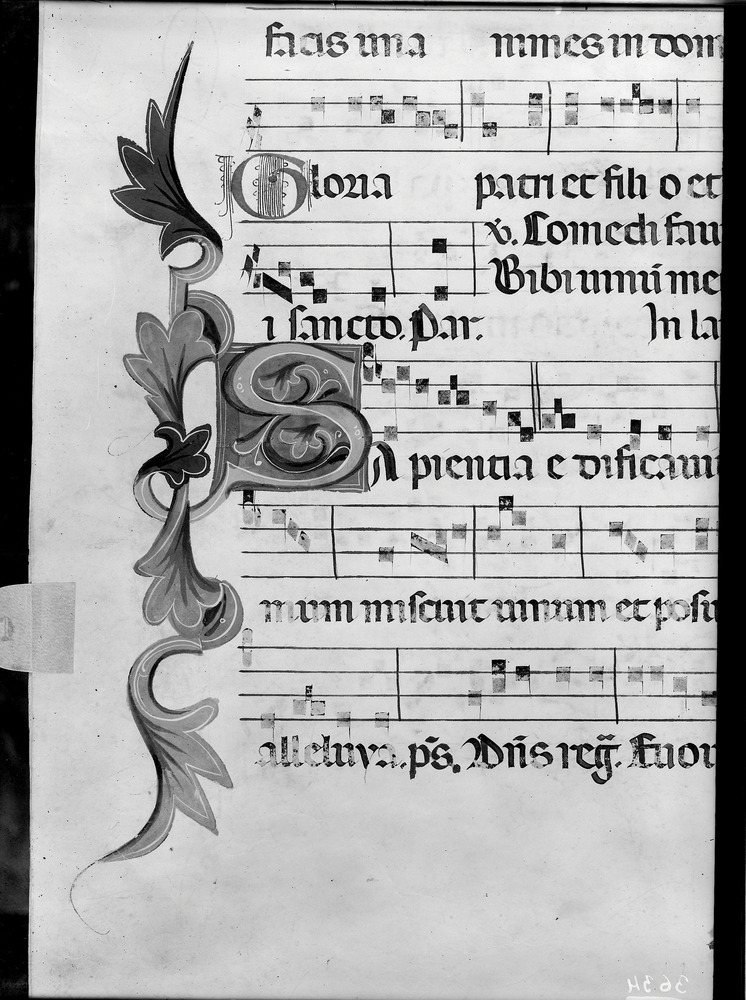 facis una nimes in dom
Gloria patri et fili o et
℣. Comedi fau
Bibi uinum me
i sancto. Par. In la
SA pientia e dificauit
num miscuit uinum et posu
alleluya. p̄s. Dn̄s reg̃. Euou
3634